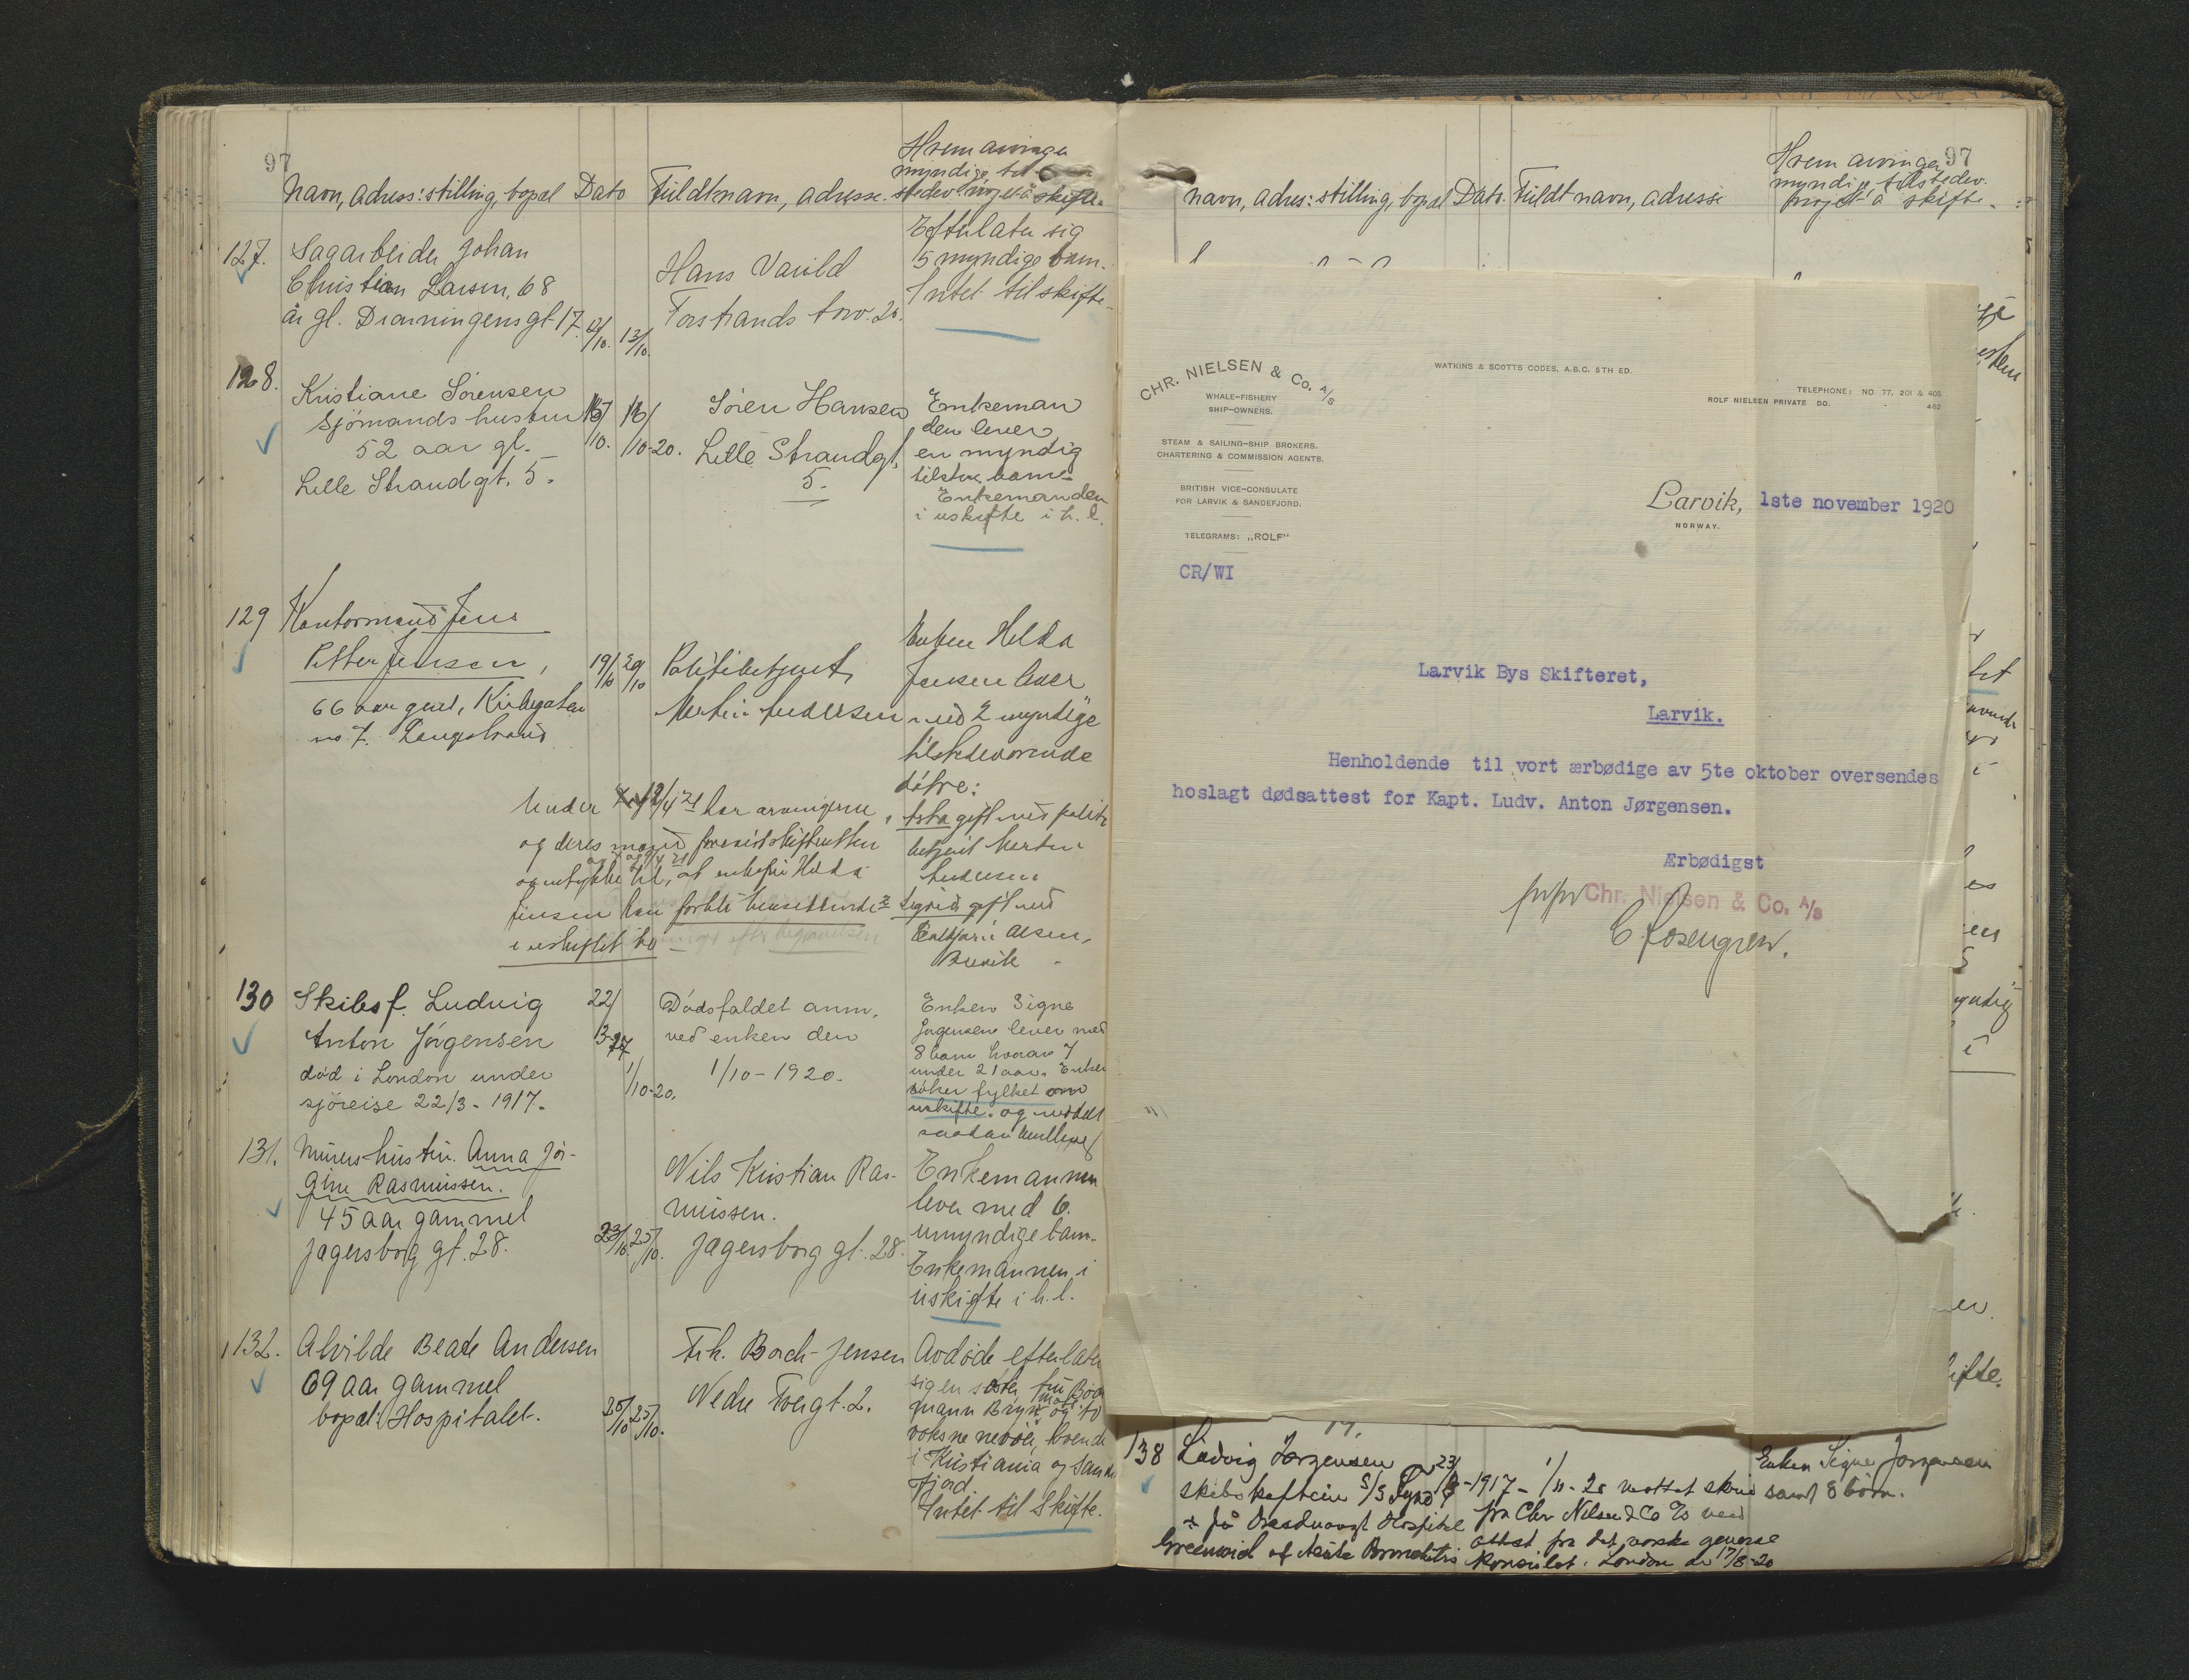 97
Navn, adress: stilling, bopæl Dato Fuldt navn, adresse.
Hvem arvinger
myndige, til
stedev. noget å skifte.
127. Sagarbeider Johan
Christian Larsen, 68
år gl. Dronningensgt 17 12/10. 13/10.
Hans Varild
Torstrands torv. 20.
Efterlater sig
5 myndige barn.
Intet til skifte
128.
Kristiane Sörensen
Sjömands hustru
52 aar gl.
Lille Strandgt. 5.
16/10-20.
Sören Hansen
Lille Strandgt,
5.
Enkeman
den lever
en myndig
tilstev. barn
Enkemanden
i uskifte i h. l.
129 Kontormand Jens
Petter Jensen,
66 aar gml, Kirkegaten
no 7. Langestrand
19/10 20/10
Politibetjent
Martin Andersen
Enken Hilda
Jensen lever
med 2 myndige
tilstedeværende
døtre:
Asta gift med politi
betjent Martin
Andersen
Sigrid gift med
Olsen,
Brevik
Under har arvingerne
og deres mænd
at enkefru Hilda
Jensen kan forbli hensittende
i uskiftet bo
130 Skibsf. Ludvig
Anton Jörgensen
död i London under
sjöreise 22/3-1917.
22/
3-17
1/10-20.
Dödsfaldet anm.
ved enken den
1/10-1920.
Enken Signe
Jörgensen lever med
8 barn hvorav 7
under 21 aar. Enken
söker fylket om
uskifte. og meddelt
saadan
131. Murers hustru. Anna Jör-
gine Rasmussen.
45 aar gammel
Jegersborg gt. 28.
23/10 25/10.
Nils Kristian Ras-
mussen.
Jegersborg gt. 28.
Enkemannen
lever med 6.
umyndige barn.
Enkemannen i
uskifte i h. l.
132. Alvilde Beate Andersen
69 aar gammel
bopæl: Hospitalet.
25/10 25/10.
Frk. Borch-Jensen
Nedre Torvgt. 2.
Avdöde efterlater
sig en söster fru
mann Bryn og to
voksne nevöer, boende
i Kristiania og Sande
fjord
Intet til Skifte.
97
Navn, adres: stilling, bopæl Dato. Fuldt navn, adresse
Hvem arvinger
myndige, tilstedev.
noget å skifte.
CHR. NIELSEN & Co. A/S
WHALE-FISHERY
SHIP-OWNERS.
STEAM & SAILING-SHIP BROKERS.
CHARTERING & COMMISSION AGENTS.
BRITISH VICE-CONSULATE
FOR LARVIK & SANDEFJORD.
TELEGRAMS: „ROLF"
WATKINS & SCOTTS CODES, A.B.C. 5TH ED.
TELEPHONE: NO 77, 201 & 403
ROLF NIELSEN PRIVATE DO. - 462
Larvik, 1ste november 1920
NORWAY.
CR/WI
Larvik Bys Skifteret,
Larvik.
Henholdende til vort ærbødige av 5te oktober oversendes
hoslagt dødsattest for Kapt. Ludv. Anton Jørgensen.
Ærbødigst
Chr. Nielsen & Co. A/S
C Rosengren.
138 Ludvig Jörgensen
skibskaptein S/S
1917 - 1/11-20 mottat
fra Chr Nielsen & Co A/S ved
attest fra det norske general
konsulat i London av 17/8-20
Enken Signe Jörgensen
samt 8 börn.
Hospital
Greenwich of Acute Bronchitis